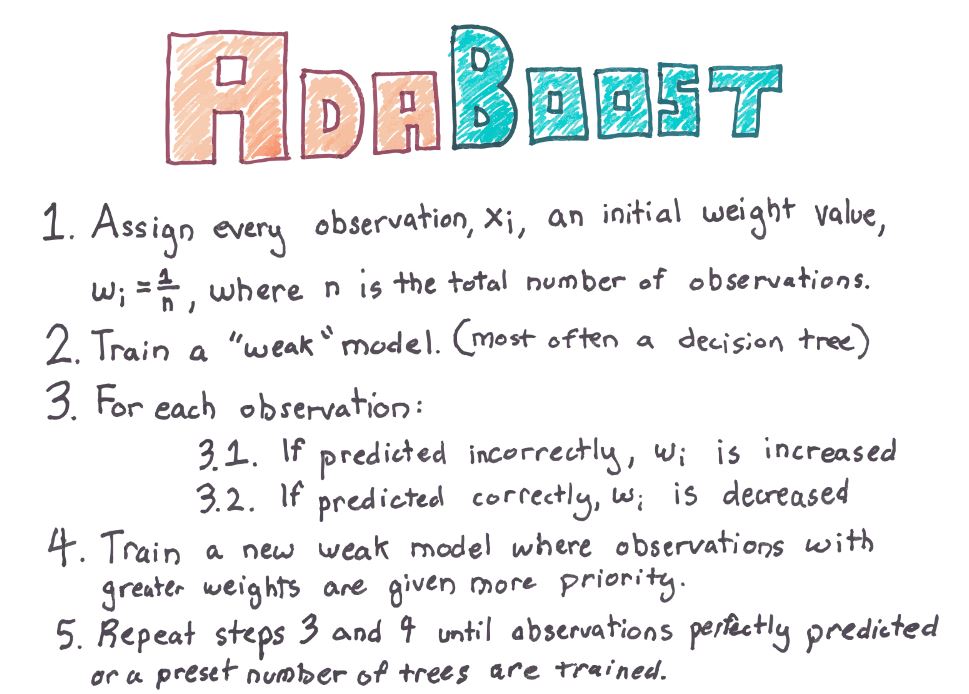 ADABOOST
1. Assign every observation, xi, an initial weight value,
wi = 1/n, where n is the total number of observations.
2. Train a "weak" model. (most often a decision tree)
3. For each observation:
3.1. If predicted incorrectly, wi is increased
3.2. If predicted correctly, wi is decreased
4. Train a new weak model where observations with
greater weights are given more priority.
5. Repeat steps 3 and 4 until observations perfectly predicted
or a preset number of trees are trained.